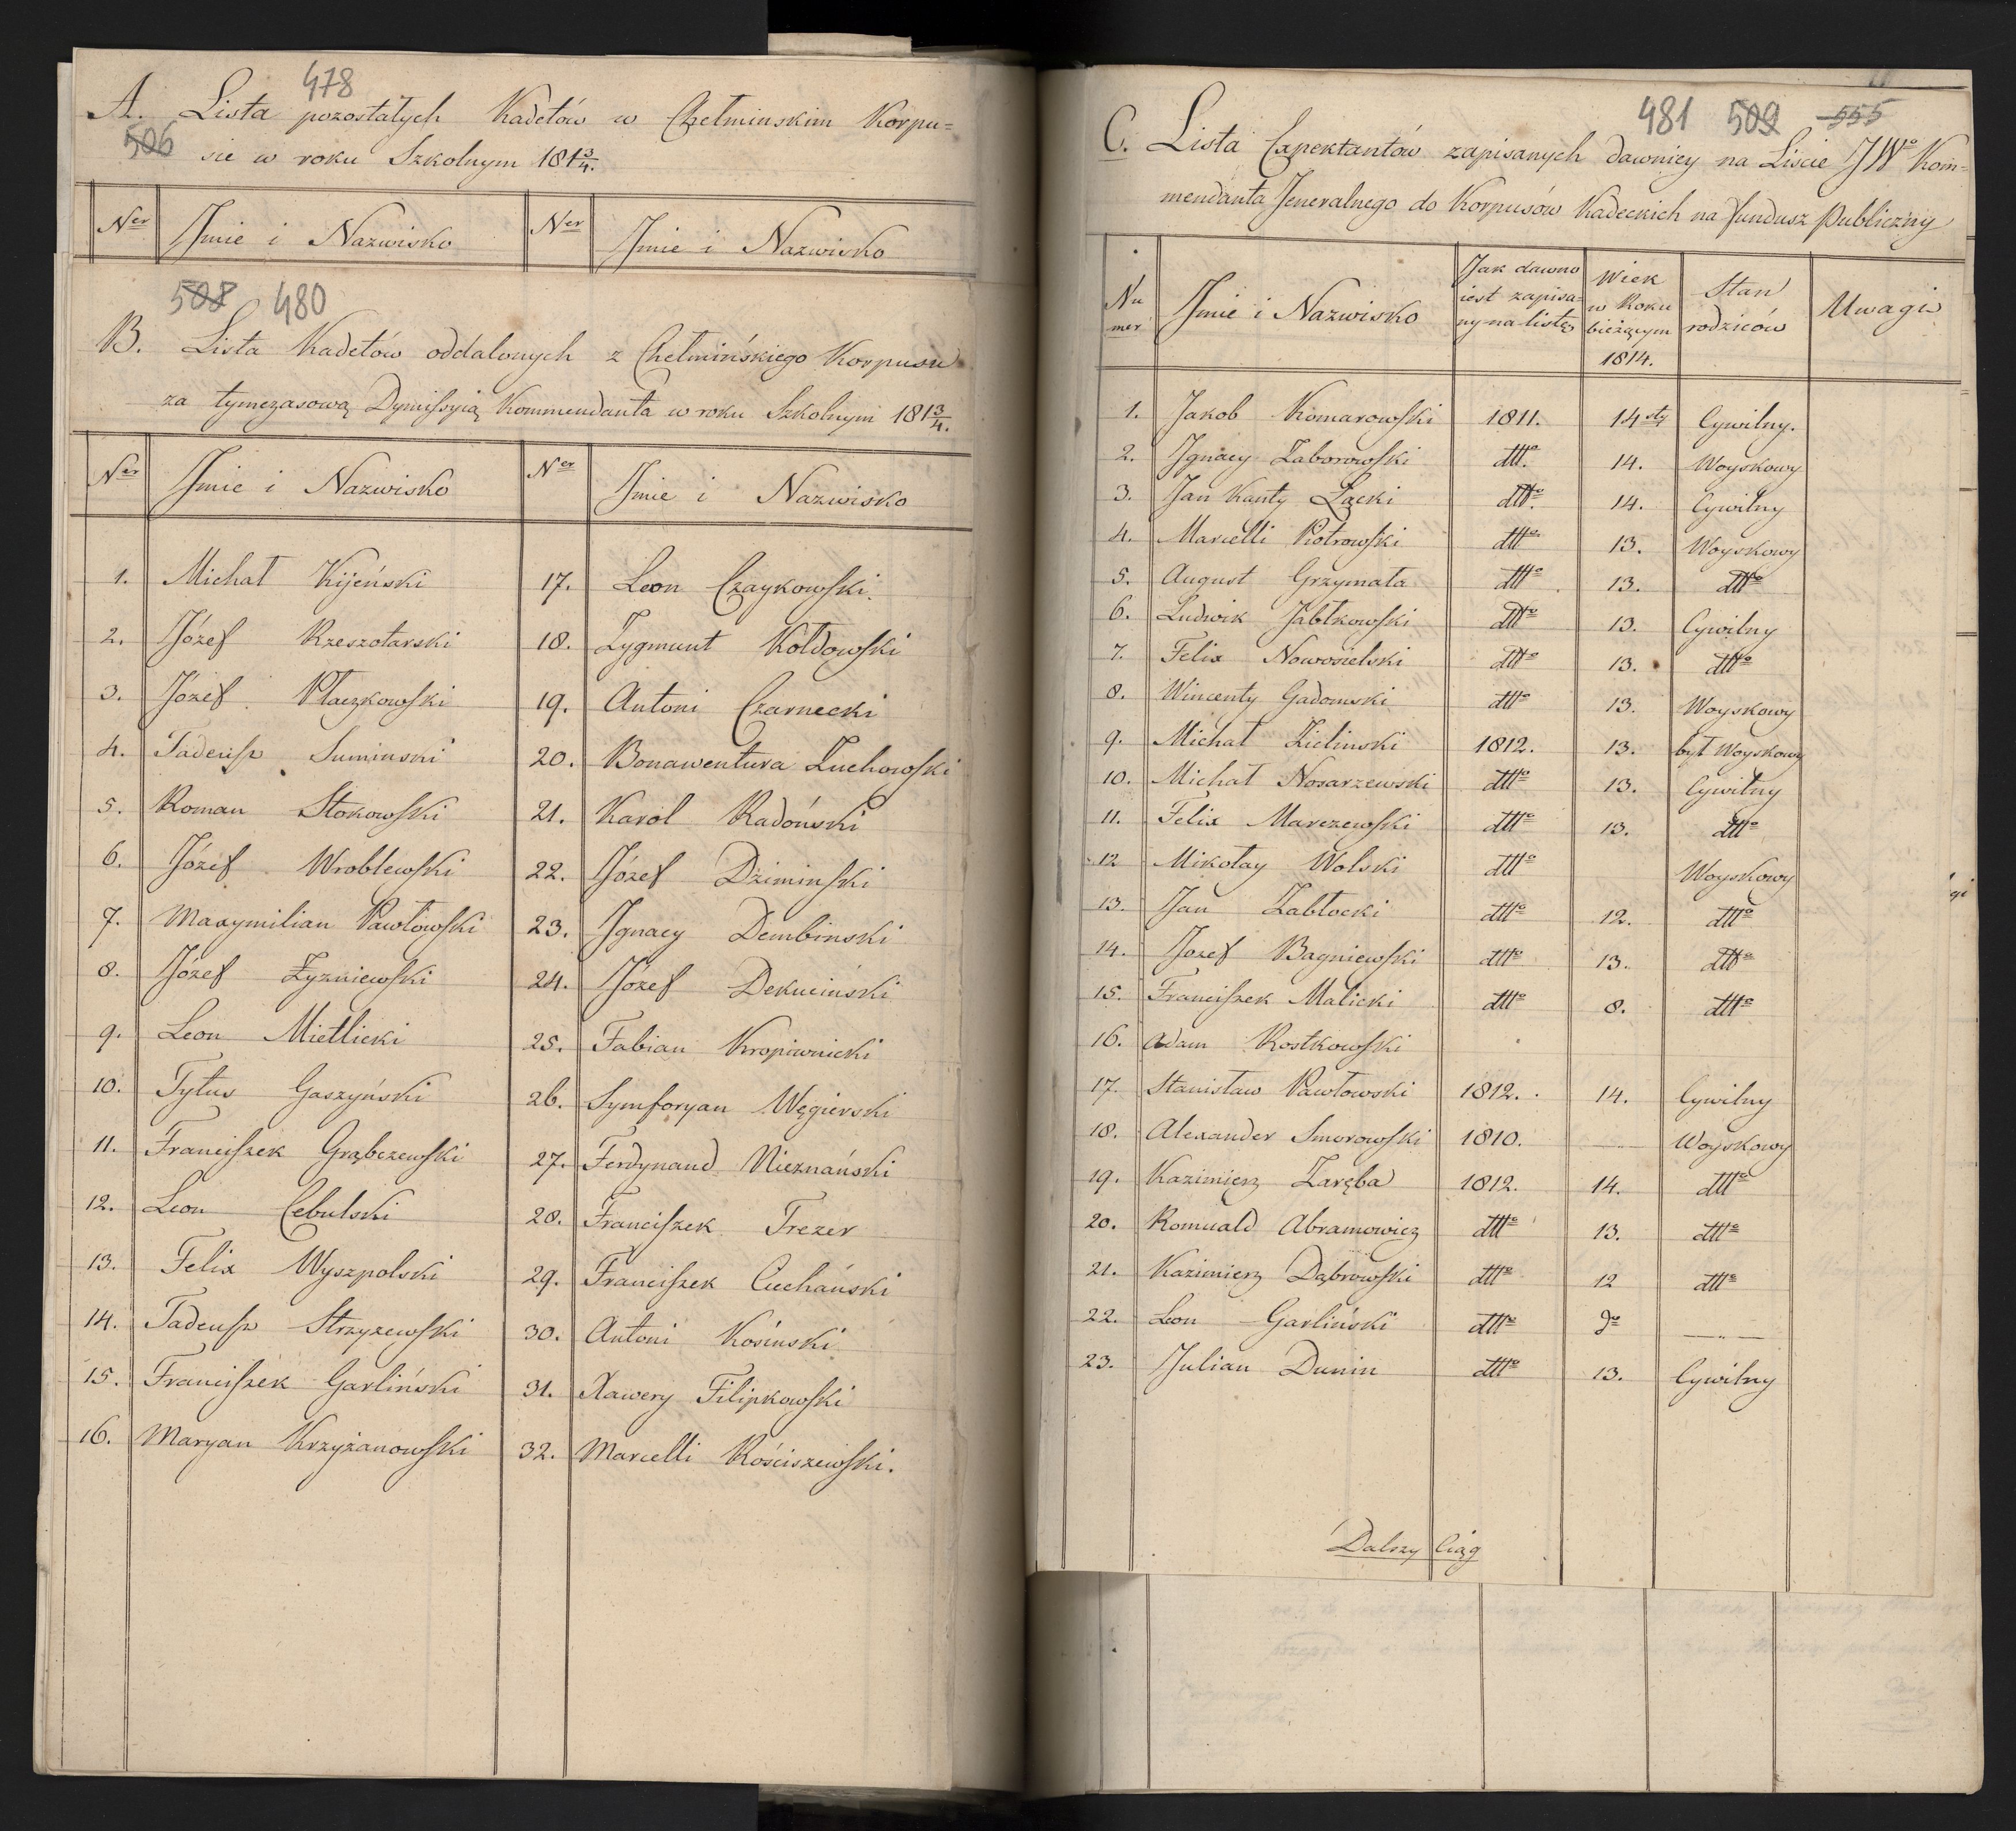 478
A. Lista pozostałych Kadetów w Chełminskim Korpu=
506
sie w roku Szkolnym 181 3/4.
Ner Jmie i Nazwisko Ner Jmie i Nazwisko
508 480
B. Lista Kadetów oddalonych z Chełmińskiego Korpusu
za tymczasową Dymissyią Kommendanta w roku Szkolnym 181 3/4.
Ner Jmie i Nazwisko Ner Jmie i Nazwisko
1. Michał Kijeński 17. Leon Czaykowski.
2. Józef Rzeszotarski 18. Zygmunt Kołdowski
3. Józef Płaczkowski 19. Antoni Czarnecki
4. Tadeusz Suminski 20. Bonawentura Zuchowski
5. Roman Stokowski 21. Karol Radóński
6. Józef Wroblewski 22. Józef Dziminski
7. Maxymilian Pawłowski 23. Jgnacy Dembinski
8. Józef Łyzniewski 24. Józef Dekuciński
9. Leon Mietlicki 25. Fabian Kropiwnicki
10. Tytus Gaszyński 26. Symforyan Węgierski
11. Franciszek Grąbczewski 27. Ferdynand Nieznański
12. Leon Cebulski 28. Franciszek Trezer
13. Felix Wyszpolski 29. Franciszek Ciechański
14. Tadeusz Strzyzewski 30. Antoni Kosinski
15. Franciszek Garliński 31. Xawery Filipkowski
16. Maryan Krzyżanowski 32. Marcelli Kościszewski.
481 509 555
C. Lista Expektantów zapisanych dawniey na Liście JWo Kom=
mendanta Jeneralnego do Korpusów Kadeckich na fundusz Publiczny
Nu
mer
Jmie i Nazwisko
Jak dawno
iest zapisa=
ny na listę
Wiek
w Roku
bieżącym
1814.
Stan
rodziców
Uwagi
1. Jakob Komarowski 1811. 14sty Cywilny.
2. Jgnacy Zaborowski dtto. 14. Woyskowy
3. Jan Kanty Łącki dtto. 14. Cywilny
4. Marcelli Piotrowski dtto 13. Woyskowy
5. August Grzymała dtto 13. dtto
6. Ludwik Jabłkowski dtto 13. Cywilny
7. Felix Nowosielski dtto 13. dtto
8. Wincenty Gadomski dtto 13. Woyskowy
9. Michał Zielinski 1812. 13. był Woyskowy
10. Michał Nosarzewski dtto 13. Cywilny
11. Felix Marczewski dtto 13. dtto
12 Mikołay Wolski dtto Woyskowy
13. Jan Zabłocki dtto 12. dtto
14. Jozef Bagniewski dtto 13. dtto
15. Franciszek Malicki dtto 8. dtto
16. Adam Rostkowski
17. Stanisław Pawłowski 1812. 14. Cywilny
18. Alexander Smorowski 1810. — Woyskowy
19. Kazimierz Zaręba 1812. 14. dtto
20. Romuald Abramowicz dtto 13. dtto
21. Kazimierz Dąbrowski dtto 12 dtto
22. Leon Garliński dtto do —"—
23. Julian Dunin dtto 13. Cywilny
Dalszy Ciąg